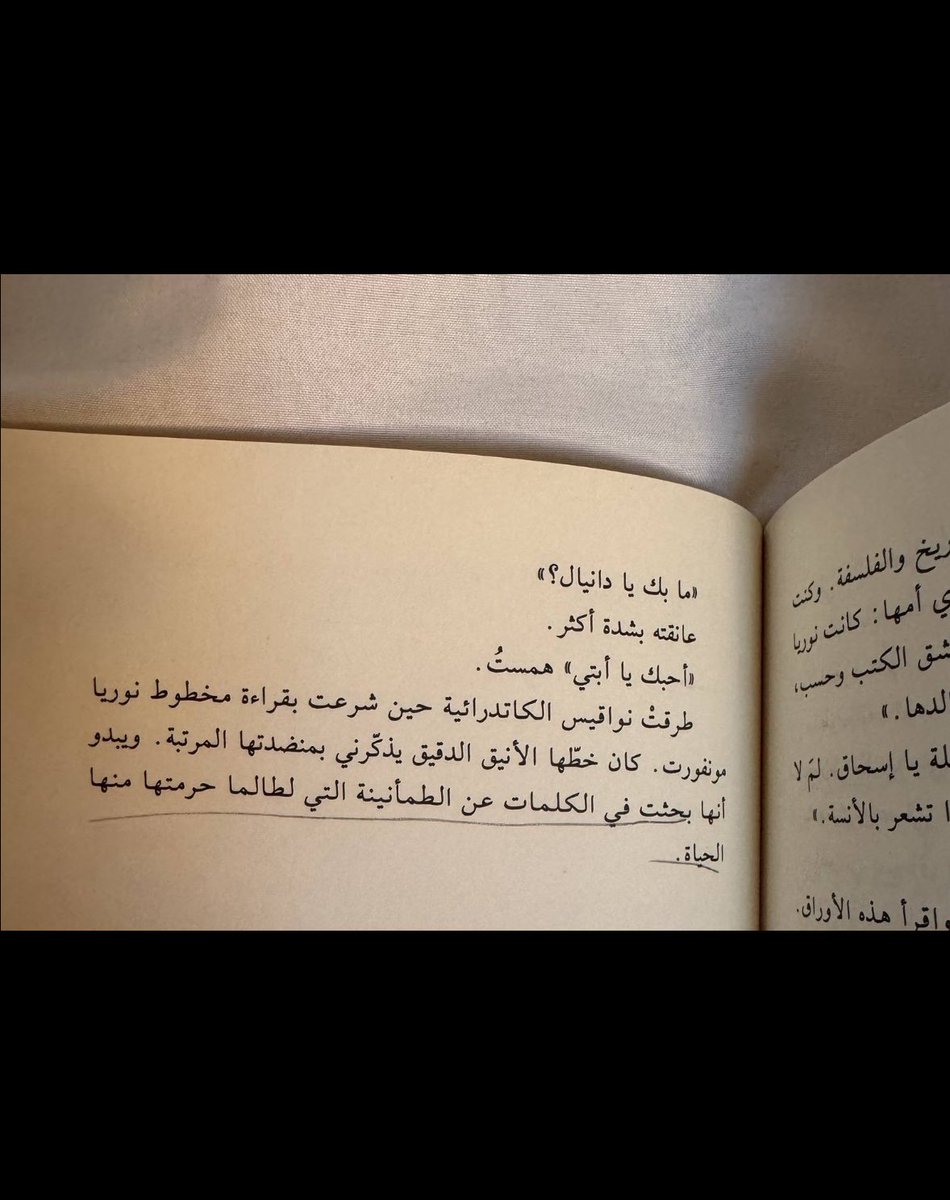 «ما بك يا دانيال؟»
عانقته بشدة أكثر.
«أحبك يا أبتي» همستُ.
طرقتْ نواقيس الكاتدرائية حين شرعت بقراءة مخطوط نوريا
مونفورت. كان خطّها الأنيق الدقيق يذكّرني بمنضدتها المرتبة. ويبدو
أنها بحثت في الكلمات عن الطمأنينة التي لطالما حرمتها منها
الحياة.
والفلسفة. وكنت
أمها: كانت نوريا
الكتب وحسب،
يا إسحاق. لمَ لا
تشعر بالأنسة.»
هذه الأوراق.